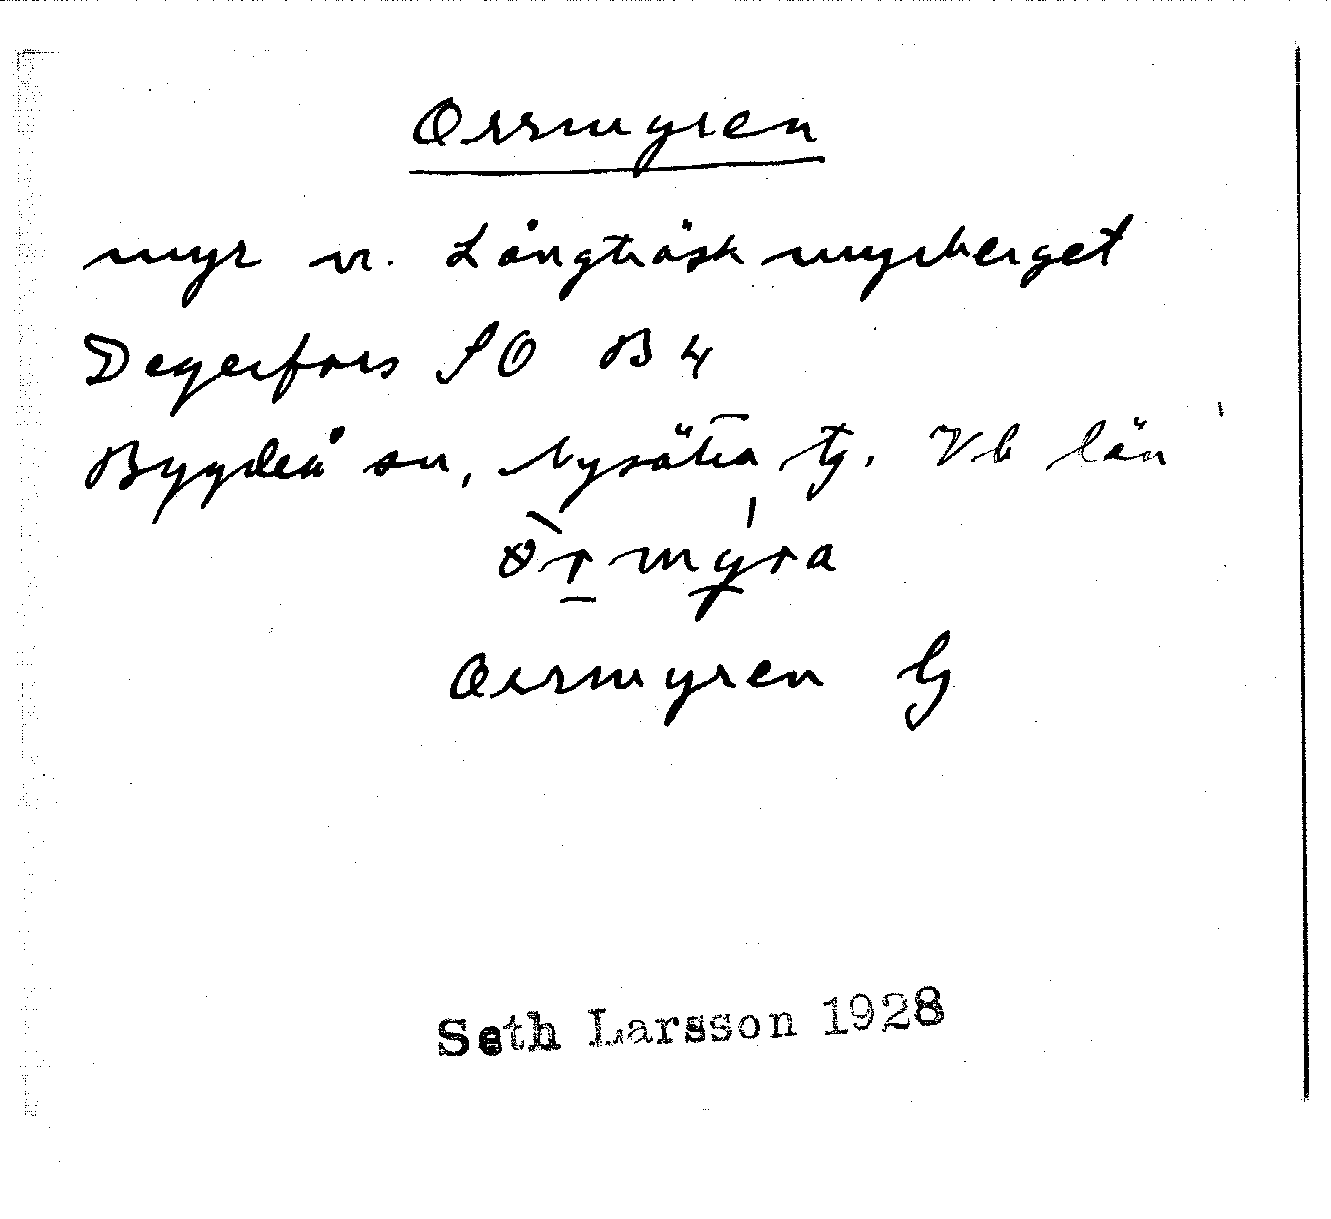 Orrmyren
myr v. Långträskmyrberget
Degerfors SO B 4
Bygdeå sn, Nysätra tg. Vb län
Orrmyren G
Seth Larsson 1928